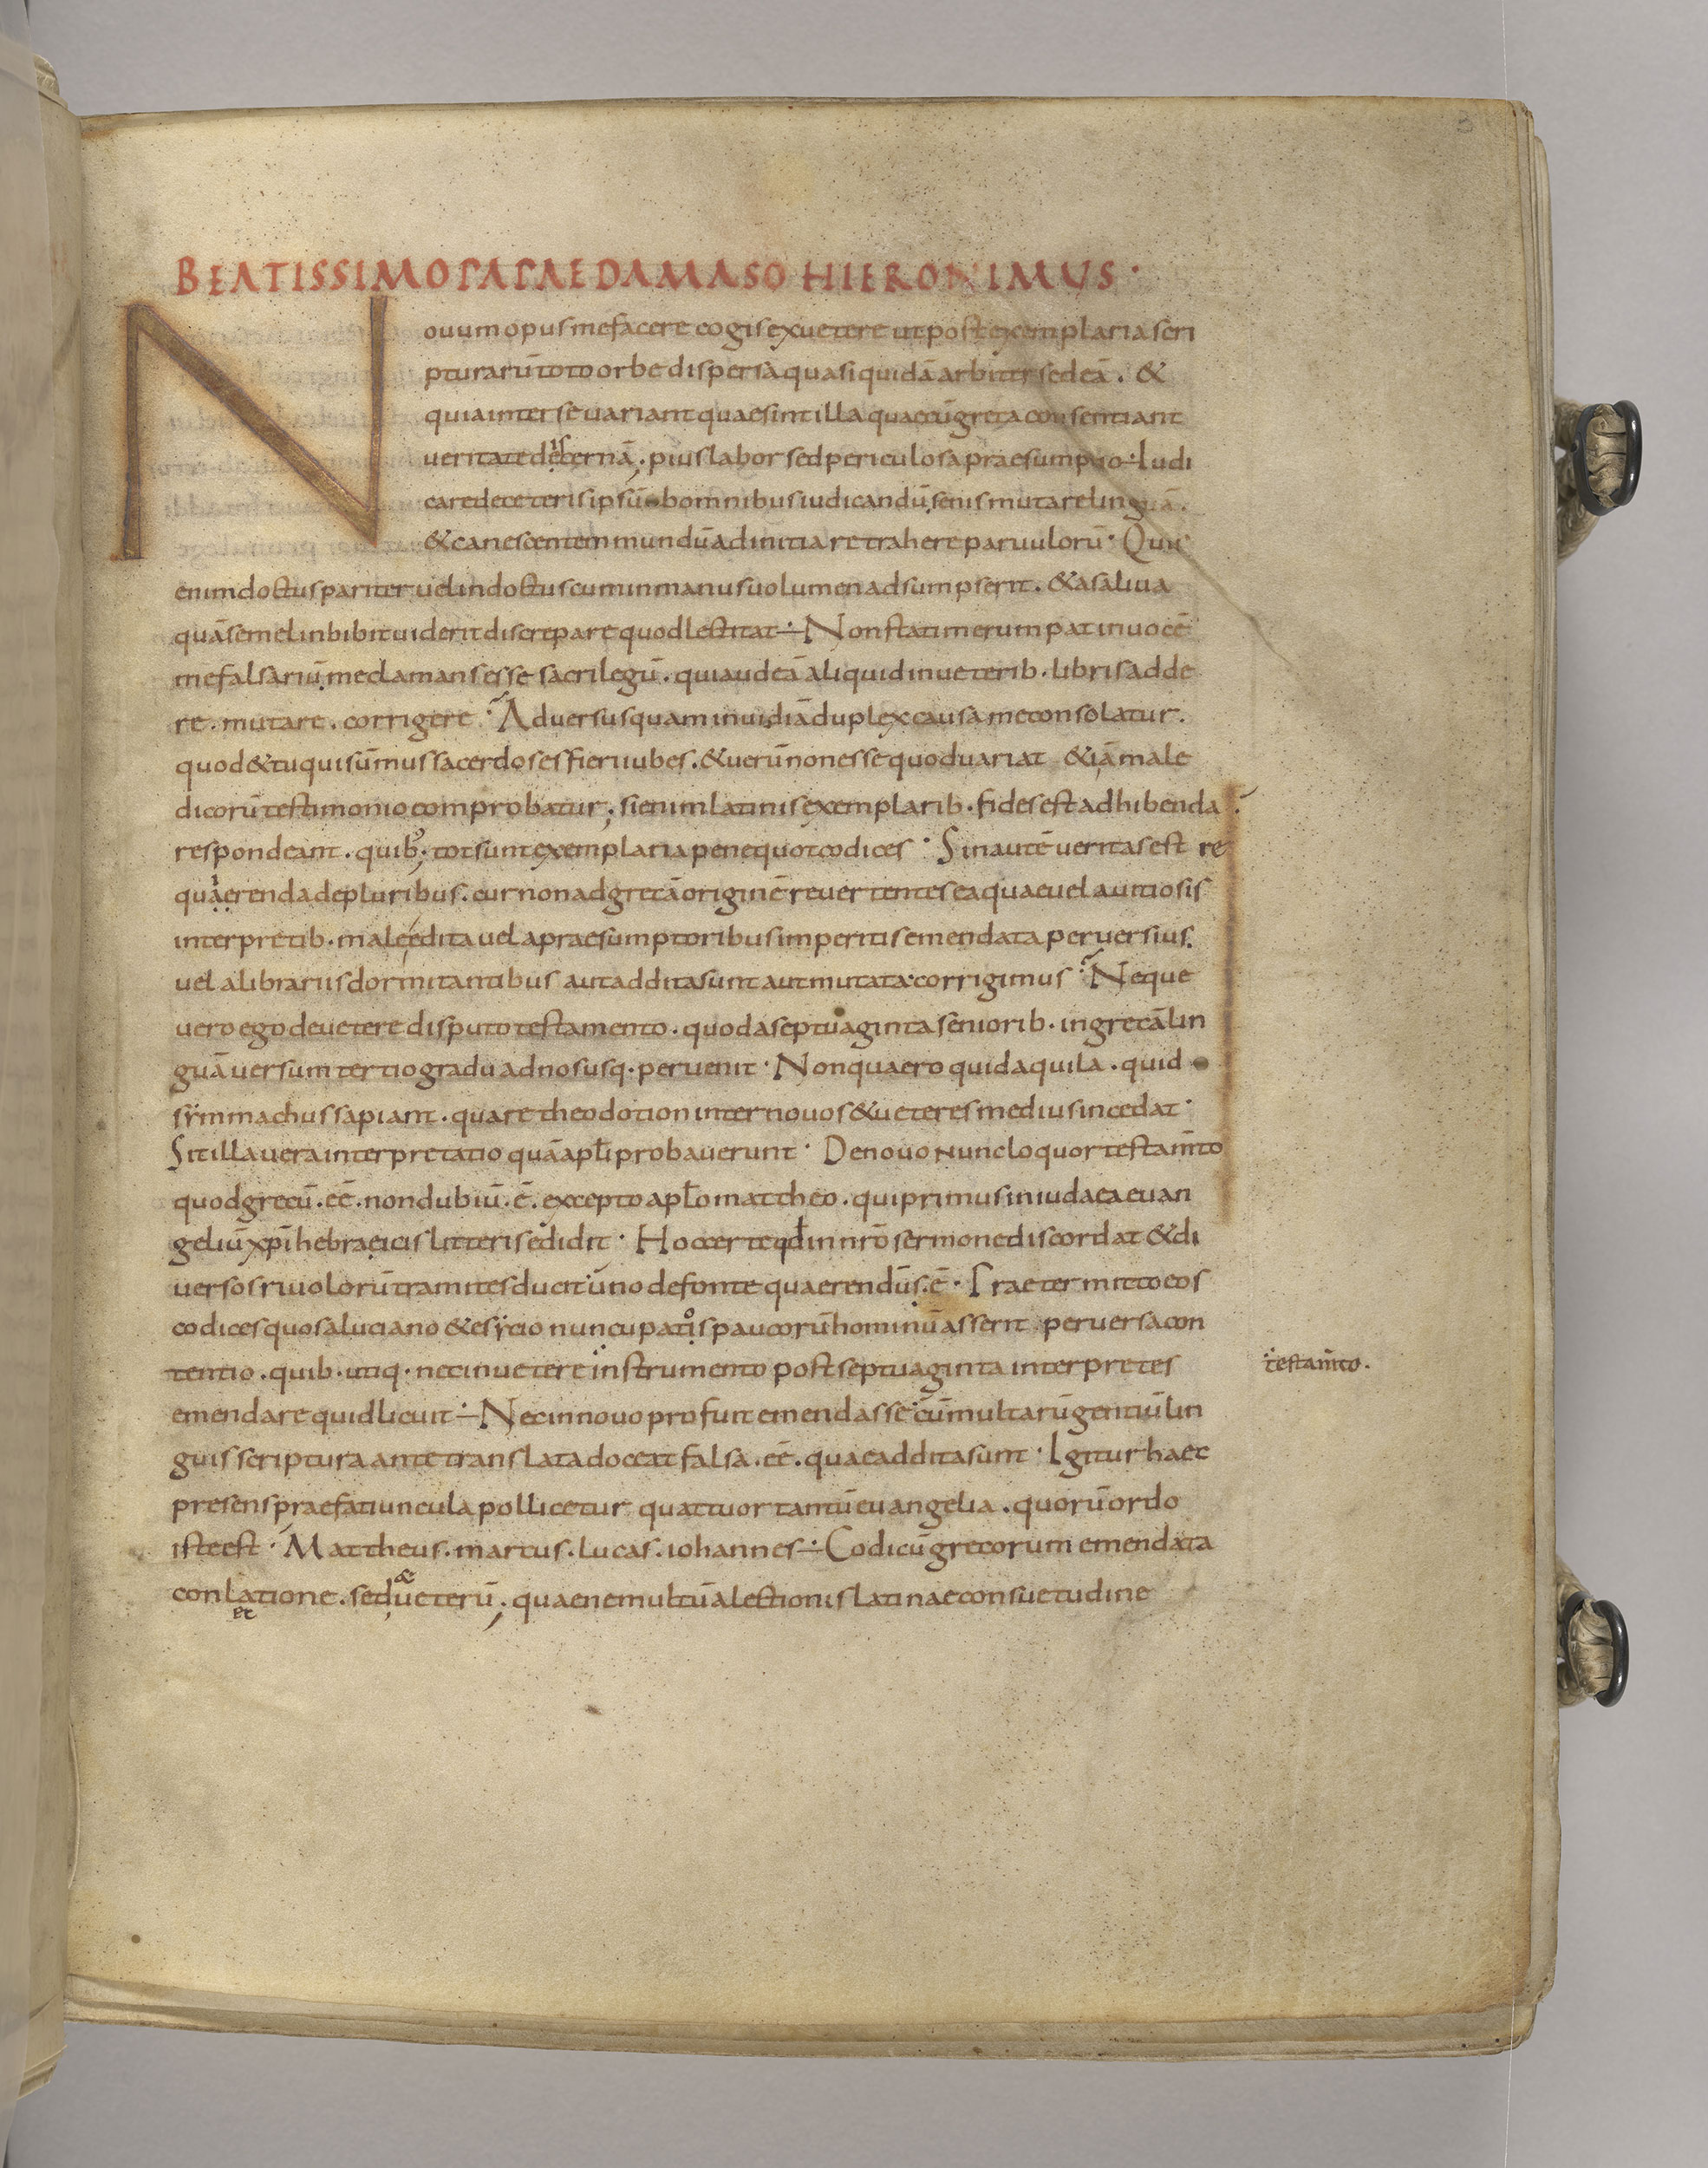 3
BEATISSIMO PAPAE DAMASO HIERONIMUS ·
Nouum opus me facere cogis ex uetere ut post exemplaria scri
pturarū toto orbe dispersa quasi quidā arbiter sedeā . &
quia inter se uariant quae sint illa quae cū greca consentiant
ueritate decernā . pius labor sed periculosa praesumptio Iudi
care de ceteris ipsū ab omnibus iudicandū senis mutare linguā .
& canescentem mundū ad initia retrahere paruulorū · Quis
enim doctus pariter uel indoctus cum in manus uolumen adsumpserit . & a saliua
quā semel inbibit uiderit discrepare quod lectitat Non statim erumpat in uocē
me falsariū me clamans esse sacrilegū . qui audeā aliquid in ueterib · libris adde
re . mutare . corrigere · Aduersus quam inuidiā duplex causa me consolatur .
quod & tu qui sūmus sacerdos es fieri iubes . & uerū non esse quod uariat &iā male
dicorū testimonio comprobatur ; si enim latinis exemplarib · fides est adhibenda
respondeant . quib; tot sunt exemplaria pene quot codices · Sin autē ueritas est re
quaerenda de pluribus . cur non ad grecā originē reuertentes ea quae uel a uitiosis
interpretib · male edita uel a praesumptoribus imperitis emendata peruersius .
uel a librariis dormitantibus aut addita sunt aut mutata corrigimus Neque
uero ego de uetere disputo testamento . quod a septuaginta seniorib · in grecā lin
guā uersum tertio gradu ad nos usq · peruenit · Non quaero quid aquila . quid
symmachus sapiant . quare theodotion inter nouos & ueteres medius incedat ·
Sit illa uera interpretatio quā apłi probauerunt · De nouo nunc loquor testam̄to
quod grecū . eē . non dubiū . ē . excepto apło mattheo . qui primus in iudaea euan
geliū xp̄i hebraeicis litteris edidit · Hoc certe qđ in nr̄o sermone discordat & di
uersos riuolorū tramites ducit uno de fonte quaerendūs . ē · Praetermitto eos
codices quos a luciano & esycio nuncupatos paucorū hominū asserit peruersa con
tentio . quib · utiq · nec in uetere instrumento post septuaginta interpretes
testam̄to .
emendare quid licuit Nec in nouo profuit emendasse cūm multarū gentiū lin
guis scriptura ante translata doceat falsa . eē . quae addita sunt · Igitur haec
presens praefatiuncula pollicetur quattuor tantū euangelia . quorū ordo
iste est · Mattheus . marcus . lucas . iohannes Codicū grecorum emendata
conlatione . sed & ueterū ; quae ne multū a lectionis latinae consuetudine